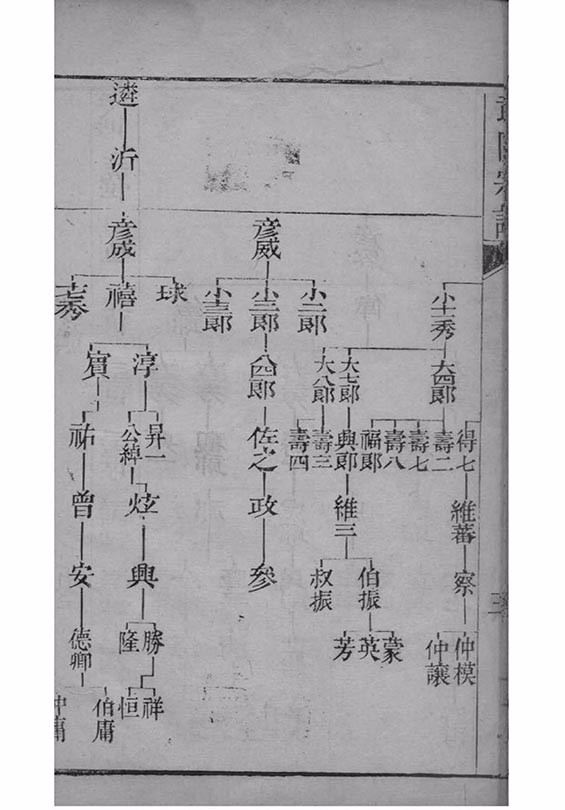 小十秀
大四郎
得七
維蕃
察
仲模
仲讓
壽二
壽七
壽八
福郎
大七郎
興郎
維三
伯振
蒙
英
芳
叔振
大八郎
壽三
壽四
彥威
小一郎
小二郎
八四郎
佐之
政
參
小三郎
遴
沂
彥成
球
禧
淳
昇一
公綽
炫
興
勝
祥
恒
隆
寶
祐
曾
安
德卿
伯庸
仲庸
三